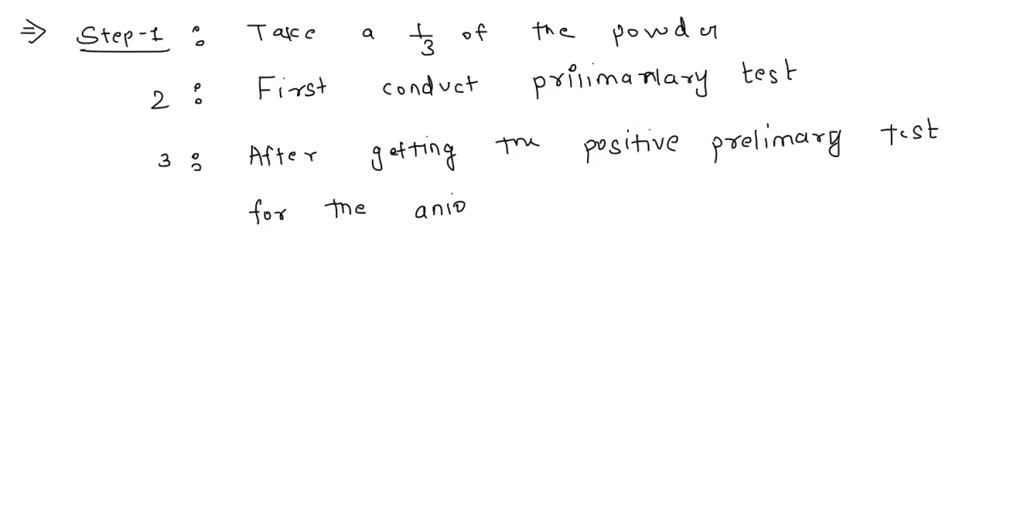 ⇒ Step-1 : Take a 1/3 of the powder
2 : First conduct prilimanlary test
3 : After getting the positive prelimary test
for the anio